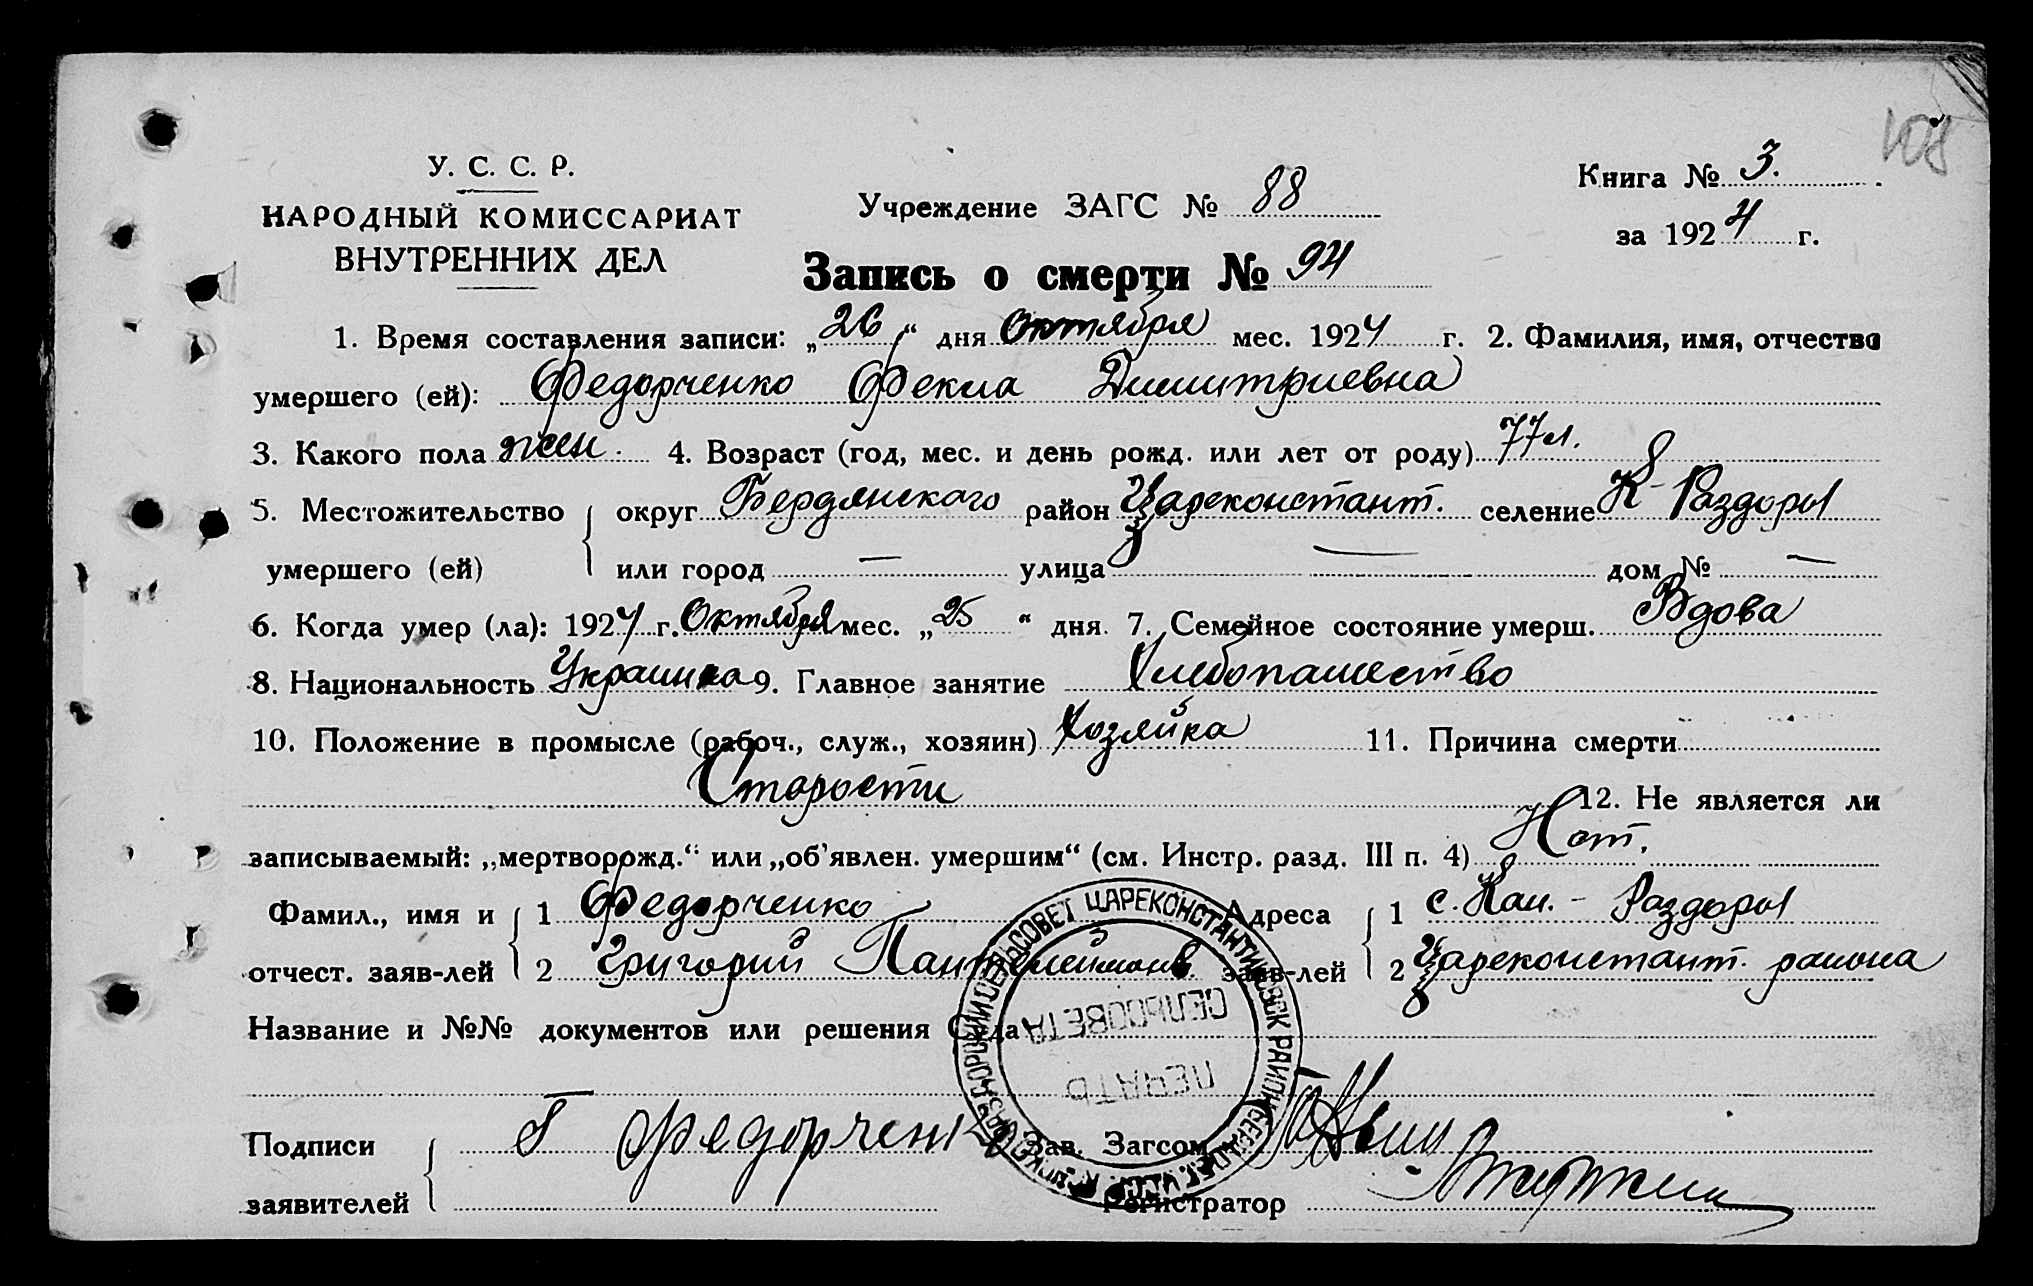 108
У. С. С. Р.
НАРОДНЫЙ КОМИССАРИАТ
ВНУТРЕННИХ ДЕЛ
Учреждение ЗАГС № 88
Книга № 3.
за 1924 г.
Запись о смерти № 94
1. Время составления записи: „26“ дня Октября мес. 1924 г. 2. Фамилия, имя, отчество
умершего (ей): Федорченко Фекла Димитриевна
3. Какого пола жен. 4. Возраст (год, мес. и день рожд. или лет от роду) 77 л.
5. Местожительство округ Бердянского район Цареконстант. селение К-Раздоры
умершего (ей) или город — улица — дом № —
6. Когда умер (ла): 1924 г. Октября мес. „25“ дня. 7. Семейное состояние умерш. Вдова
8. Национальность Украинка 9. Главное занятие Хлебопашество
10. Положение в промысле (рабоч., служ., хозяин) Хозяйка 11. Причина смерти
Старости 12. Не является ли
записываемый: „мертворожд.“ или „об'явлен. умершим“ (см. Инстр. разд. III п. 4) Нет.
Фамил., имя и 1 Федорченко Адреса 1 с. Кам.- Раздоры
отчест. заяв-лей 2 Григорий Пантелеймонов. заяв-лей 2 Цареконстант. района
Название и №№ документов или решения Суда
СЕЛЬСОВЕТА
ПЕЧАТЬ
Подписи Г Федорченко Зав. Загсом
заявителей Регистратор